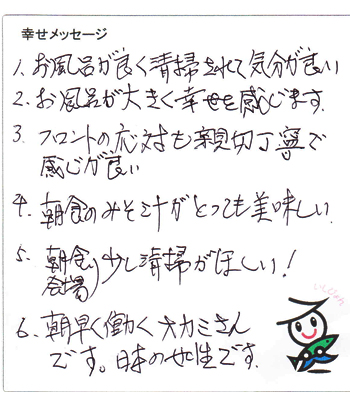 幸せメッセージ
1. お風呂が良く清掃されて気分が良い
2. お風呂が大きく幸せを感じます.
3. フロントの応対も親切丁寧で
感じが良い
4. 朝食のみそ汁がとっても美味しい.
5. 朝食会場り少し清掃がほしい!
6. 朝早く働くオカミさん
です。日本の女性です.